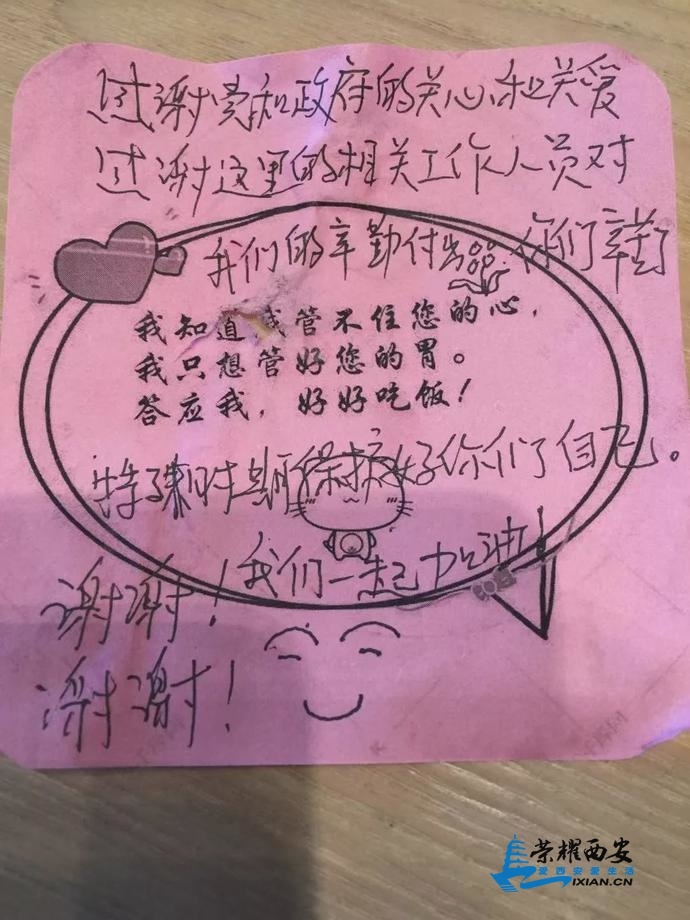 过谢党和政府的关心和关爱
过谢这里的相关工作人员对
我们的辛勤付出 你们辛苦了
我知道我管不住您的心，
我只想管好您的胃。
答应我，好好吃饭！
特殊时期保护好你们了自己。
我们一起加油！
谢谢！
谢谢！
荣耀西安
爱西安爱生活
IXIAN.CN